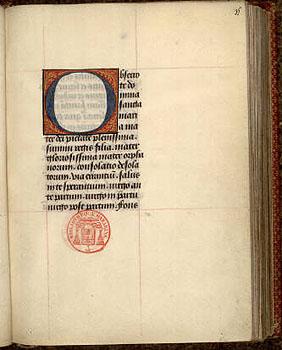 Obsecro
te do
mina
sancta
mari
a ma
ter dei pietate plenissima.
summi regis filia. mater
gloriosissima mater orpha
norum. consolatio desola
torum. via errantium. salus
in te sperantium. virgo an
te partum. virgo in partu
virgo post partum. Fons